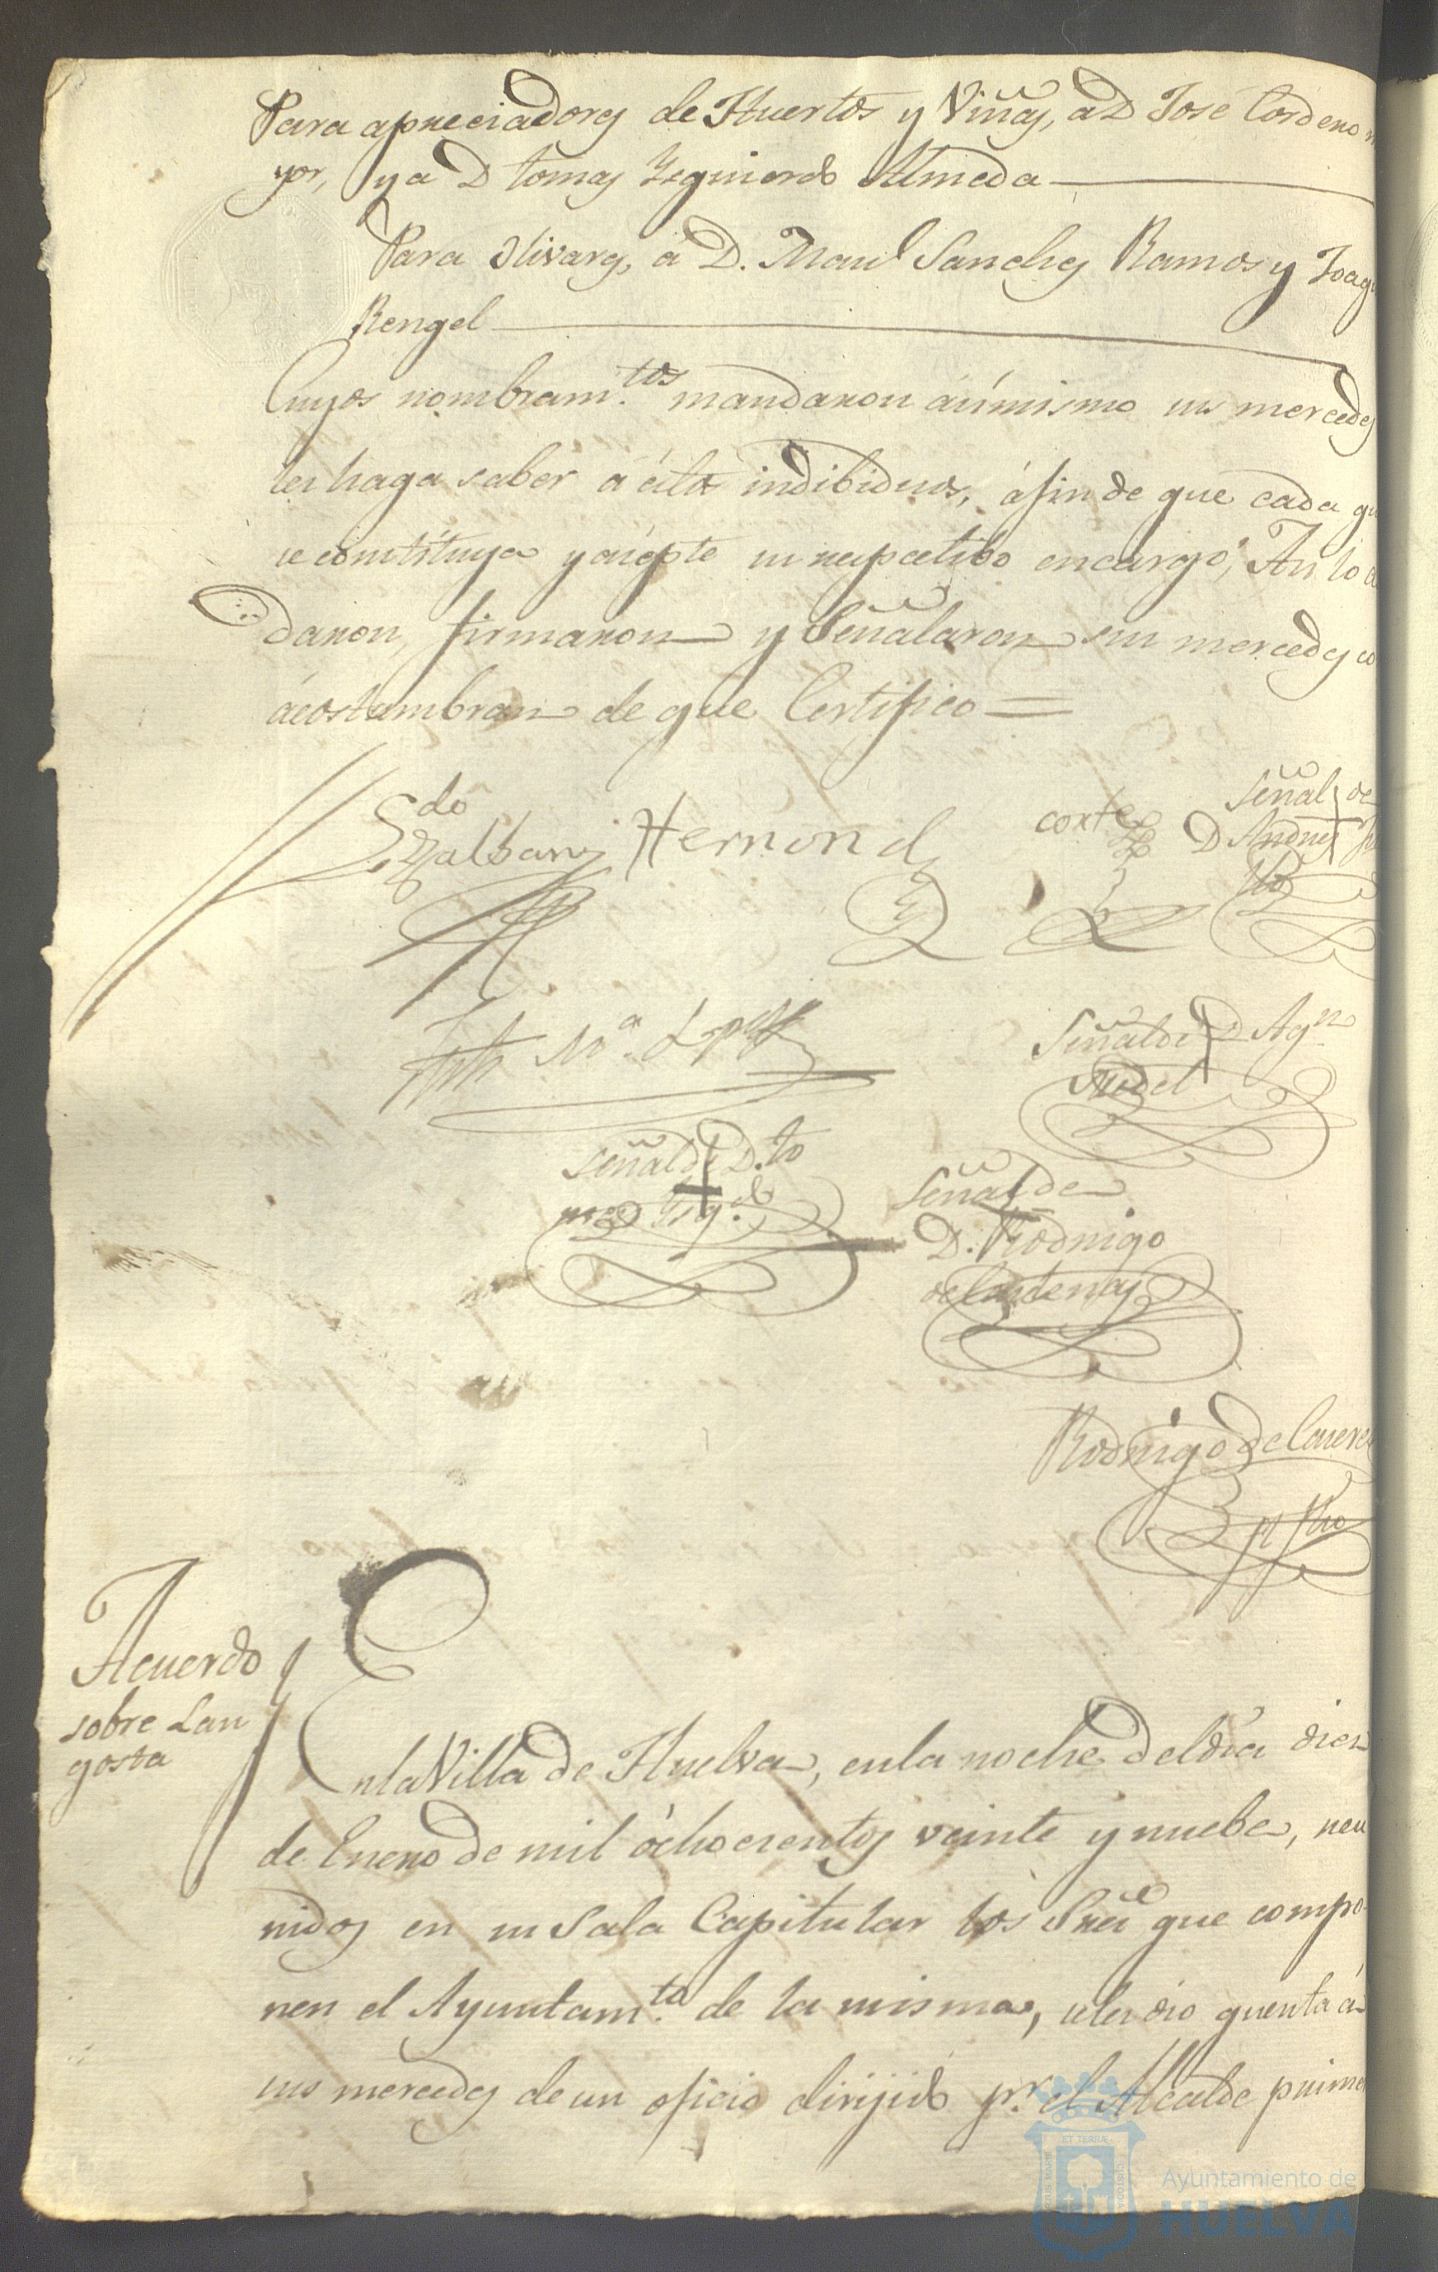 Para apreciadores de Huertos y Viñas, a D José Cordero m
yor, y a D tomas Yzquierdo Almeda
Para Olivares, á D. Manl Sanches Ramos y Joaqu
Rengel
Cuyos nombram.tos mandaron ásimismo sus mercedes
les haga saber a éstos indibiduos, áfin de que cada qu
se constituya y acépte su respectibo encargo; Asi lo a
daron, firmaron y Señalaron sus mercedes co
ácostumbran de que Certifico =
Ldo
Zalbariz Hernandz corte Señal de
D Andres
Señal de D Agn
Señal de D. to
mas Ysq.do
Señal de
D. Rodrigo
de Cardenas
Rodrigo de
Acuerdo
sobre Lan
gosta
En la Villa de Huelva, en la noche del día diez
de Enero de mil óchocientos veinte y nuebe, reu
nidos en su Sala Capitular los Sres que compo-
nen el Ayuntam.to de la misma, seles dio quenta á
sus mercedes de un oficio dirijido pr. el Alcalde prime
ET TERRÆ
Ayuntamiento de
HUELVA